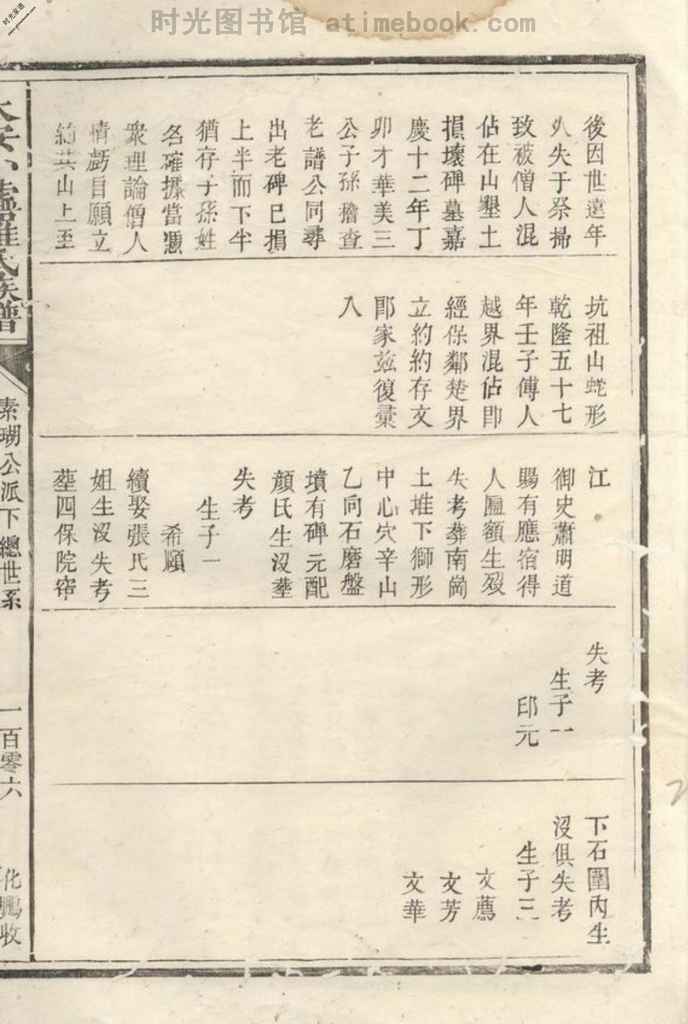 时光图书馆 atimebook.com
时光菜谱
後因世遠年
久失于祭掃
致被僧人混
佔在山墾土
損壞碑墓嘉
慶十二年丁
卯才華美三
公子孫撿查
老譜公同尋
出老碑已損
上半而下半
猶存子孫姓
名確據當憑
衆理論僧人
情虧自願立
約其山上至
坑祖山蛇形
乾隆五十七
年壬子傅人
越界混佔即
經保鄰楚界
立約約存文
郎家茲復彙
入
江
御史蕭明道
賜有應宿得
人匾額生歿
失考葬南崗
土堆下獅形
中心穴辛山
乙向石磨盤
墳有碑元配
顔氏生沒塟
失考
生子一
希願
續娶張氏三
姐生沒失考
塟四保院
失考
生子一
邱元
下石圍內生
沒俱失考
生子三
文薦
文芳
文華
氏族譜
素瑚公派下總世系
一百零六
化鵬收